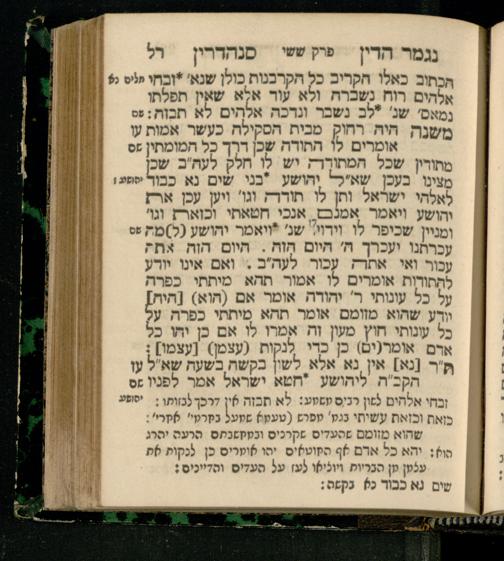 נגמר הדין פרק ששי סנהדרין רל
הכתוב כאלו הקריב כל הקרבנות כולן שנא׳ *זבחי תלים נא
אלהים רוח נשברה ולא עוד אלא שאין תפלתו
נמאס׳ שנ׳ *לב נשבר ונדכה אלהים לא תבזה: שם
משנה היה רחוק מבית הסקילה כעשר אמות עו
אומרים לו התודה שכן דרך כל המומתין שם
מתודין שכל המתודה יש לו חלק לעה״ב שכן
מצינו בעכן שא״ל יהושע *בני שים נא כבוד יהושע ז
לאלהי ישראל ותן לו תודה וגו׳ ויען עכן את
יהושע ויאמר אמנם אנכי חטאתי וכזאת וגו׳
ומניין שכיפר לו וידויו שנ׳ *ויאמר יהושע (ל)מה שם
עכרתנו יעכרך ה׳ היום הזה. היום הזה אתה
עכור ואי אתה עכור לעה״ב. ואם אינו יודע
להתודות אומרים לו אמור תהא מיתתי כפרה
על כל עונותי ר׳ יהודה אומר אם (הוא) [היה]
יודע שהוא מזומם אומר תהא מיתתי כפרה על
כל עונותי חוץ מעון זה אמרו לו אם כן יהו כל
אדם אומר(ים) כן כדי לנקות (עצמן) [עצמו]:
ת״ר [נא] אין נא אלא לשון בקשה בשעה שא״ל עז
הקב״ה ליהושע *חטא ישראל אמר לפניו שם
זבחי אלהים לשון רבים משמע: לא תבזה אין דרכך לבזותו: יהושע
כזאת וכזאת עשיתי בגמ׳ מפרש (טעמא שמעל בחרמי׳ אחרי׳:
שהוא מזומם שהעדים שקרנים ובמחשבתם הרעה יהרג
הוא: יהא כל אדם אף החוטאים יהו אומרים כן לנקות את
עלמן מן הבריות ויוציאו לעז על העדים והדיינים:
שים נא כבוד נא בקשה: